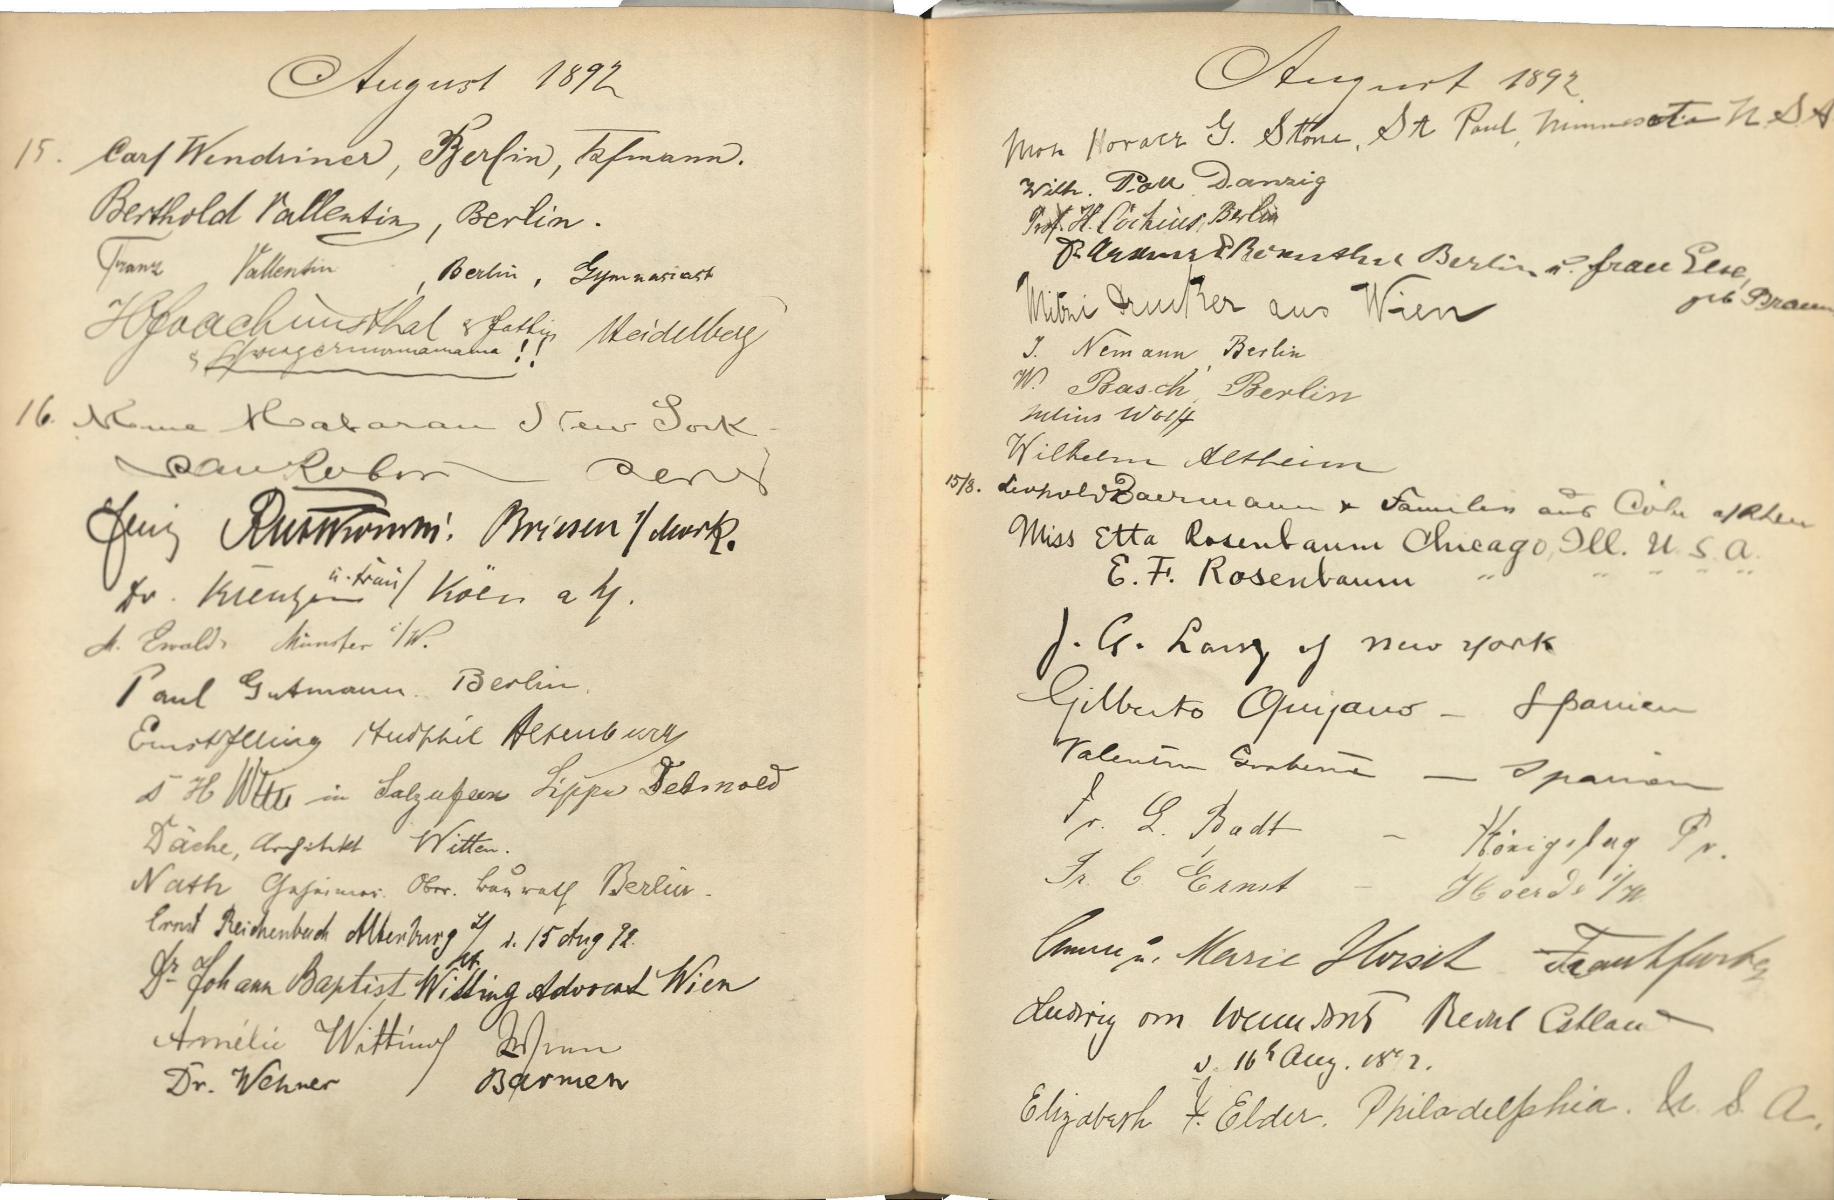 August 1892
15. Carl Wendriner, Berlin, Kfmann.
Berthold Vallentin, Berlin.
Franz Vallentin, Berlin, Gymnasiast
HJoachimsthal & Gattin Heidelberg
& Schwiegermama !!
16. New York
Briesen i/Mark.
Dr. u. Frau / Köln a/
A. Ewald Münster i/W.
Paul Gutmann. Berlin.
Ernst Altenburg
S H Witte in Salzuflen Lippe Detmold
Däche, Architekt Witten.
Nath Geheimer Ober. Baurath Berlin.
Ernst Reichenbach Altenburg d. 15 Aug 92.
Dr. Johann Baptist Witting Advocat Wien
Amélie Witting Wien
Dr. Wehner / Barmen
August 1892
Mrs Horace G. Stone, St Paul, Minnesota U S A
Wilh. Poll Danzig
Prof. H. Cochius, Berlin
Dr Berlin u. Frau Else,
geb Braun
Mitzi Drucker aus Wien
J. Nemann, Berlin
W. Basch, Berlin
Julius Wolff
Wilhelm Altheim
15/8. Leopold Baermann & Familie aus Cöln a/Rhein
Miss Etta Rosenbaum Chicago, Ill. U. S. A.
E. F. Rosenbaum " " " " "
J. A. of New York
Gilberto Quijano – Spanien
Valentin – Spanien
Fr. L. Badt – Königsberg Pr.
Fr. C Ernst – Hoerde i/W
u. Marie Horsch Frankfurt
Ludwig von Reval Estland
d. 16t Aug. 1892.
Elizabeth F. Elder. Philadelphia. U. S. A.